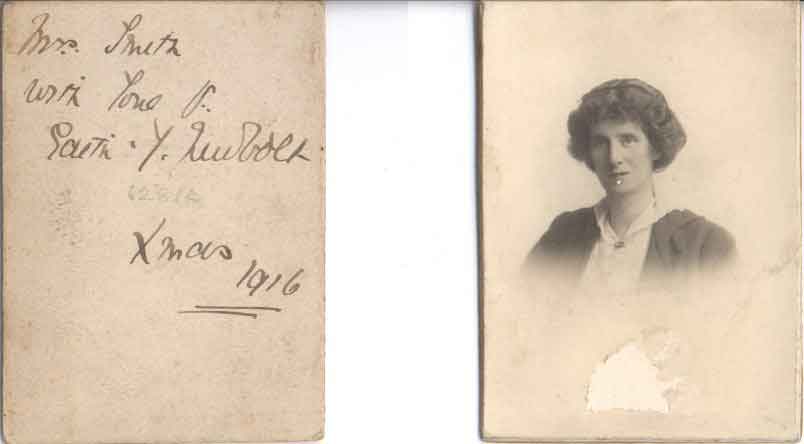 Mrs. Smith
with love f.
Edith Y. Newbolt
Xmas
1916